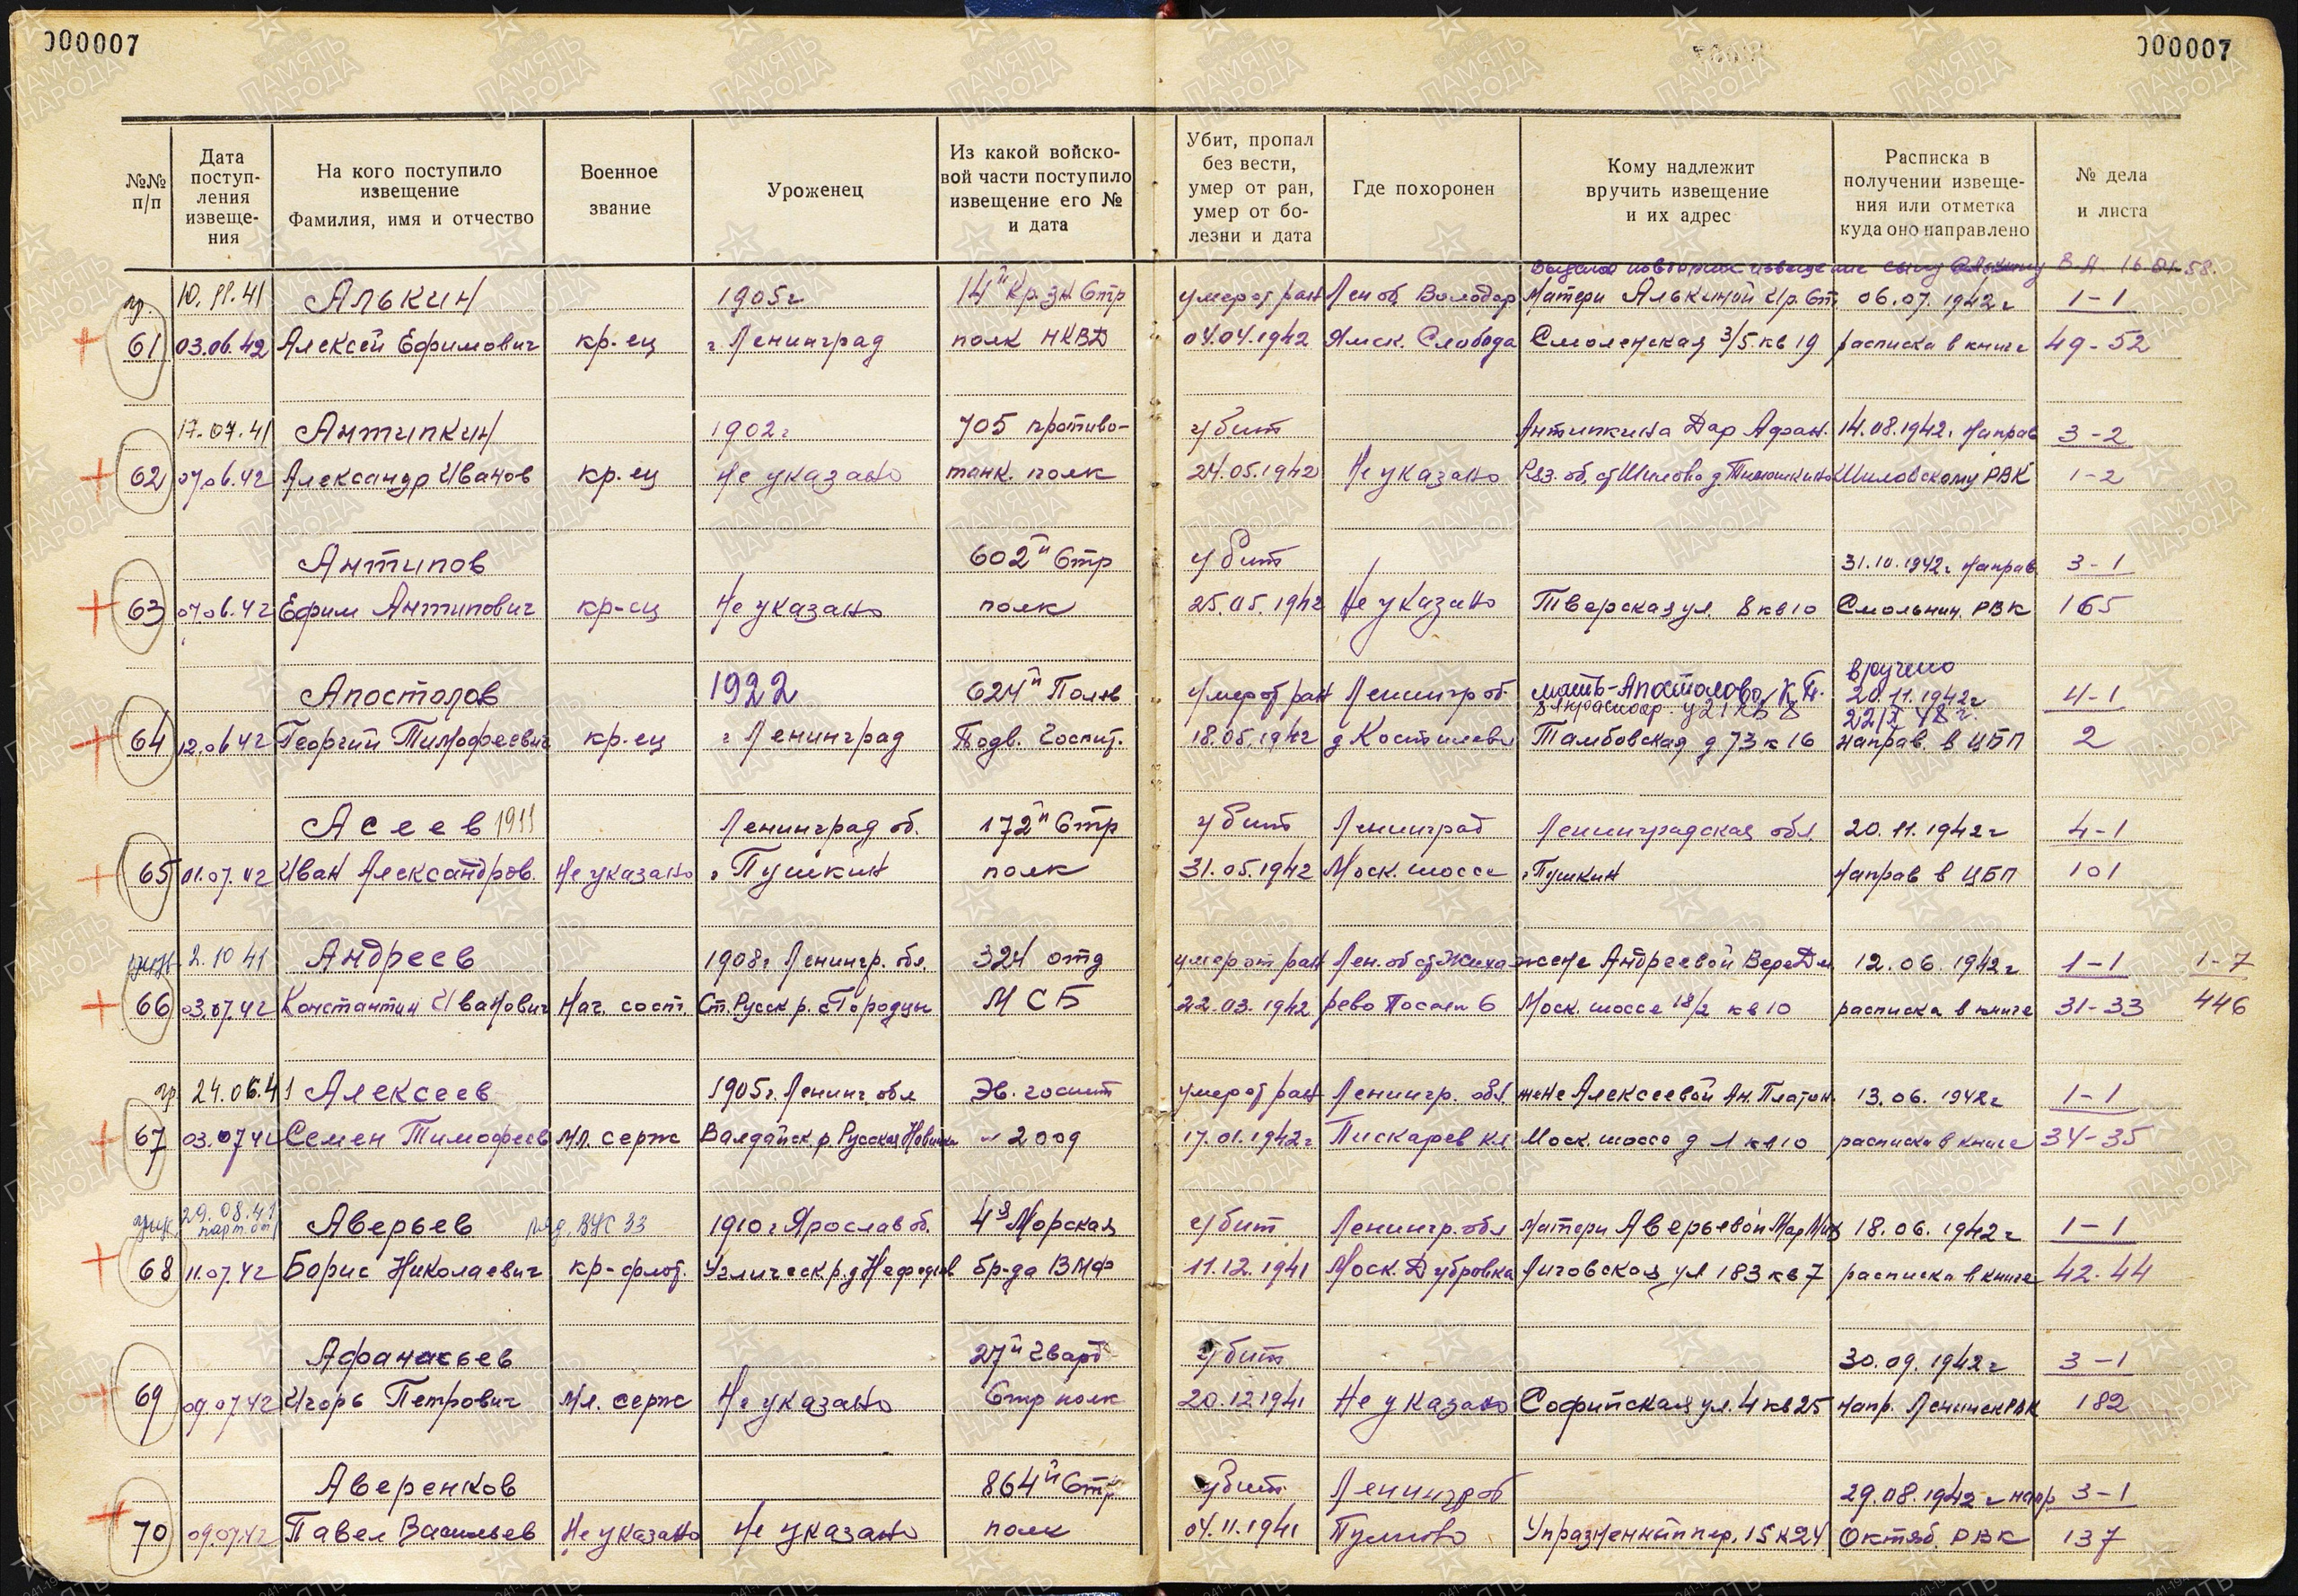 000007
000007
№№ п/п
Дата поступ- ления извеще- ния
На кого поступило извещение Фамилия, имя и отчество
Военное звание
Уроженец
Из какой войско- вой части поступило извещение его № и дата
Убит, пропал без вести, умер от ран, умер от бо- лезни и дата
Где похоронен
Кому надлежит вручить извещение и их адрес
Расписка в получении извеще- ния или отметка куда оно направлено
№ дела и листа
извещение сыну
гр. 10.11.41 Алькин 1905г 14й Кр.зн Стр умер от ран Лен об. Володар Матери Алькиной Кр. Ст. 06.07.1942г 1-1
61 03.06.42 Алексей Ефимович кр.ец г Ленинград полк НКВД 04.04.1942 Ямск. Слобода Смоленская 3/5 кв 19 расписка в книге 49-52
17.07.41 Антипкин 1902г 705 противо- убит Антипкина Дар Афан. 14.08.1942г Направ 3-2
62 07.06.42 Александр Иванов кр.ец Не указано танк. полк 24.05.1942 Не указано Ряз. об. ст Шилово д Тимошкино Шиловскому РВК 1-2
Антипов 602й Стр убит 31.10.1942г Направ. 3-1
63 07.06.42 Ефим Антипович кр-ец Не указано полк 25.05.1942 Не указано Тверская ул. 8 кв 10 Смольнин. РВК 165
вручено
Апостолов 1922 624й Полев умер от ран Ленингр об. мать-Апостолова К.П. 20.11.1942г 4-1
64 12.06.42 Георгий Тимофеевич кр.ец г Ленинград Подв. Госпит. 18.05.1942 д Костылево Тамбовская д 73 к 16 направ. в ЦБП 2
Асеев 1911 Ленинград об. 172й Стр убит Ленинград Ленинградская обл. 20.11.1942г 4-1
65 01.07.42 Иван Александров. Не указано г Пушкин полк 31.05.1942 Моск. шоссе г Пушкин Направ в ЦБП 101
2.10 41 Андреев 1908г Ленингр. обл. 324 отд умер от ран Лен. об ст Жиха- жене Андреевой Вере Дм 12.06.1942г 1-1 1-7
66 03.07.42 Константин Иванович Нач. сост. Ст. Русск р. с Городцы МСБ 22.03.1942 рево Поселк 6 Моск. шоссе 18/2 кв 10 расписка в книге 31-33 446
гр. 24.06.41 Алексеев 1905г. Ленинг. обл Эв. госпит умер от ран Ленингр. обл. жене Алексеевой Ан. Платон. 13.06.1942г 1-1
67 03.07.42 Семен Тимофеев мл. серж Валдайск. р. Русская Новинка 2009 17.01.1942г Пискарев кл Моск. шоссе д 1 кв 10 расписка в книге 34-35
29.08.41 Аверьев ряд. ВУС 33 1910г Ярослав об. 4я Морская убит Ленингр. обл матери Аверьевой Мар Мих 18.06.1942г 1-1
68 11.07.42 Борис Николаевич кр-флот. Угличск. р. д Нефедьев бр-да ВМФ 11.12.1941 Моск. Дубровка Лиговская ул 183 кв 7 расписка в книге 42-44
Афанасьев 27й Гвард убит 30.09.1942г 3-1
69 09.07.42 Игорь Петрович Мл. серж Не указано Стр полк 20.12.1941 Не указано Софийская ул. 4 кв 25 напр. Ленинск РВК 182
Аверенков 864й Стр убит Ленинград 29.08.1942г напр 3-1
70 09.07.42 Павел Васильев Не указано Не указано полк 04.11.1941 Пулково Упраздненный пер. 15 к 24 Октяб. РВК 137